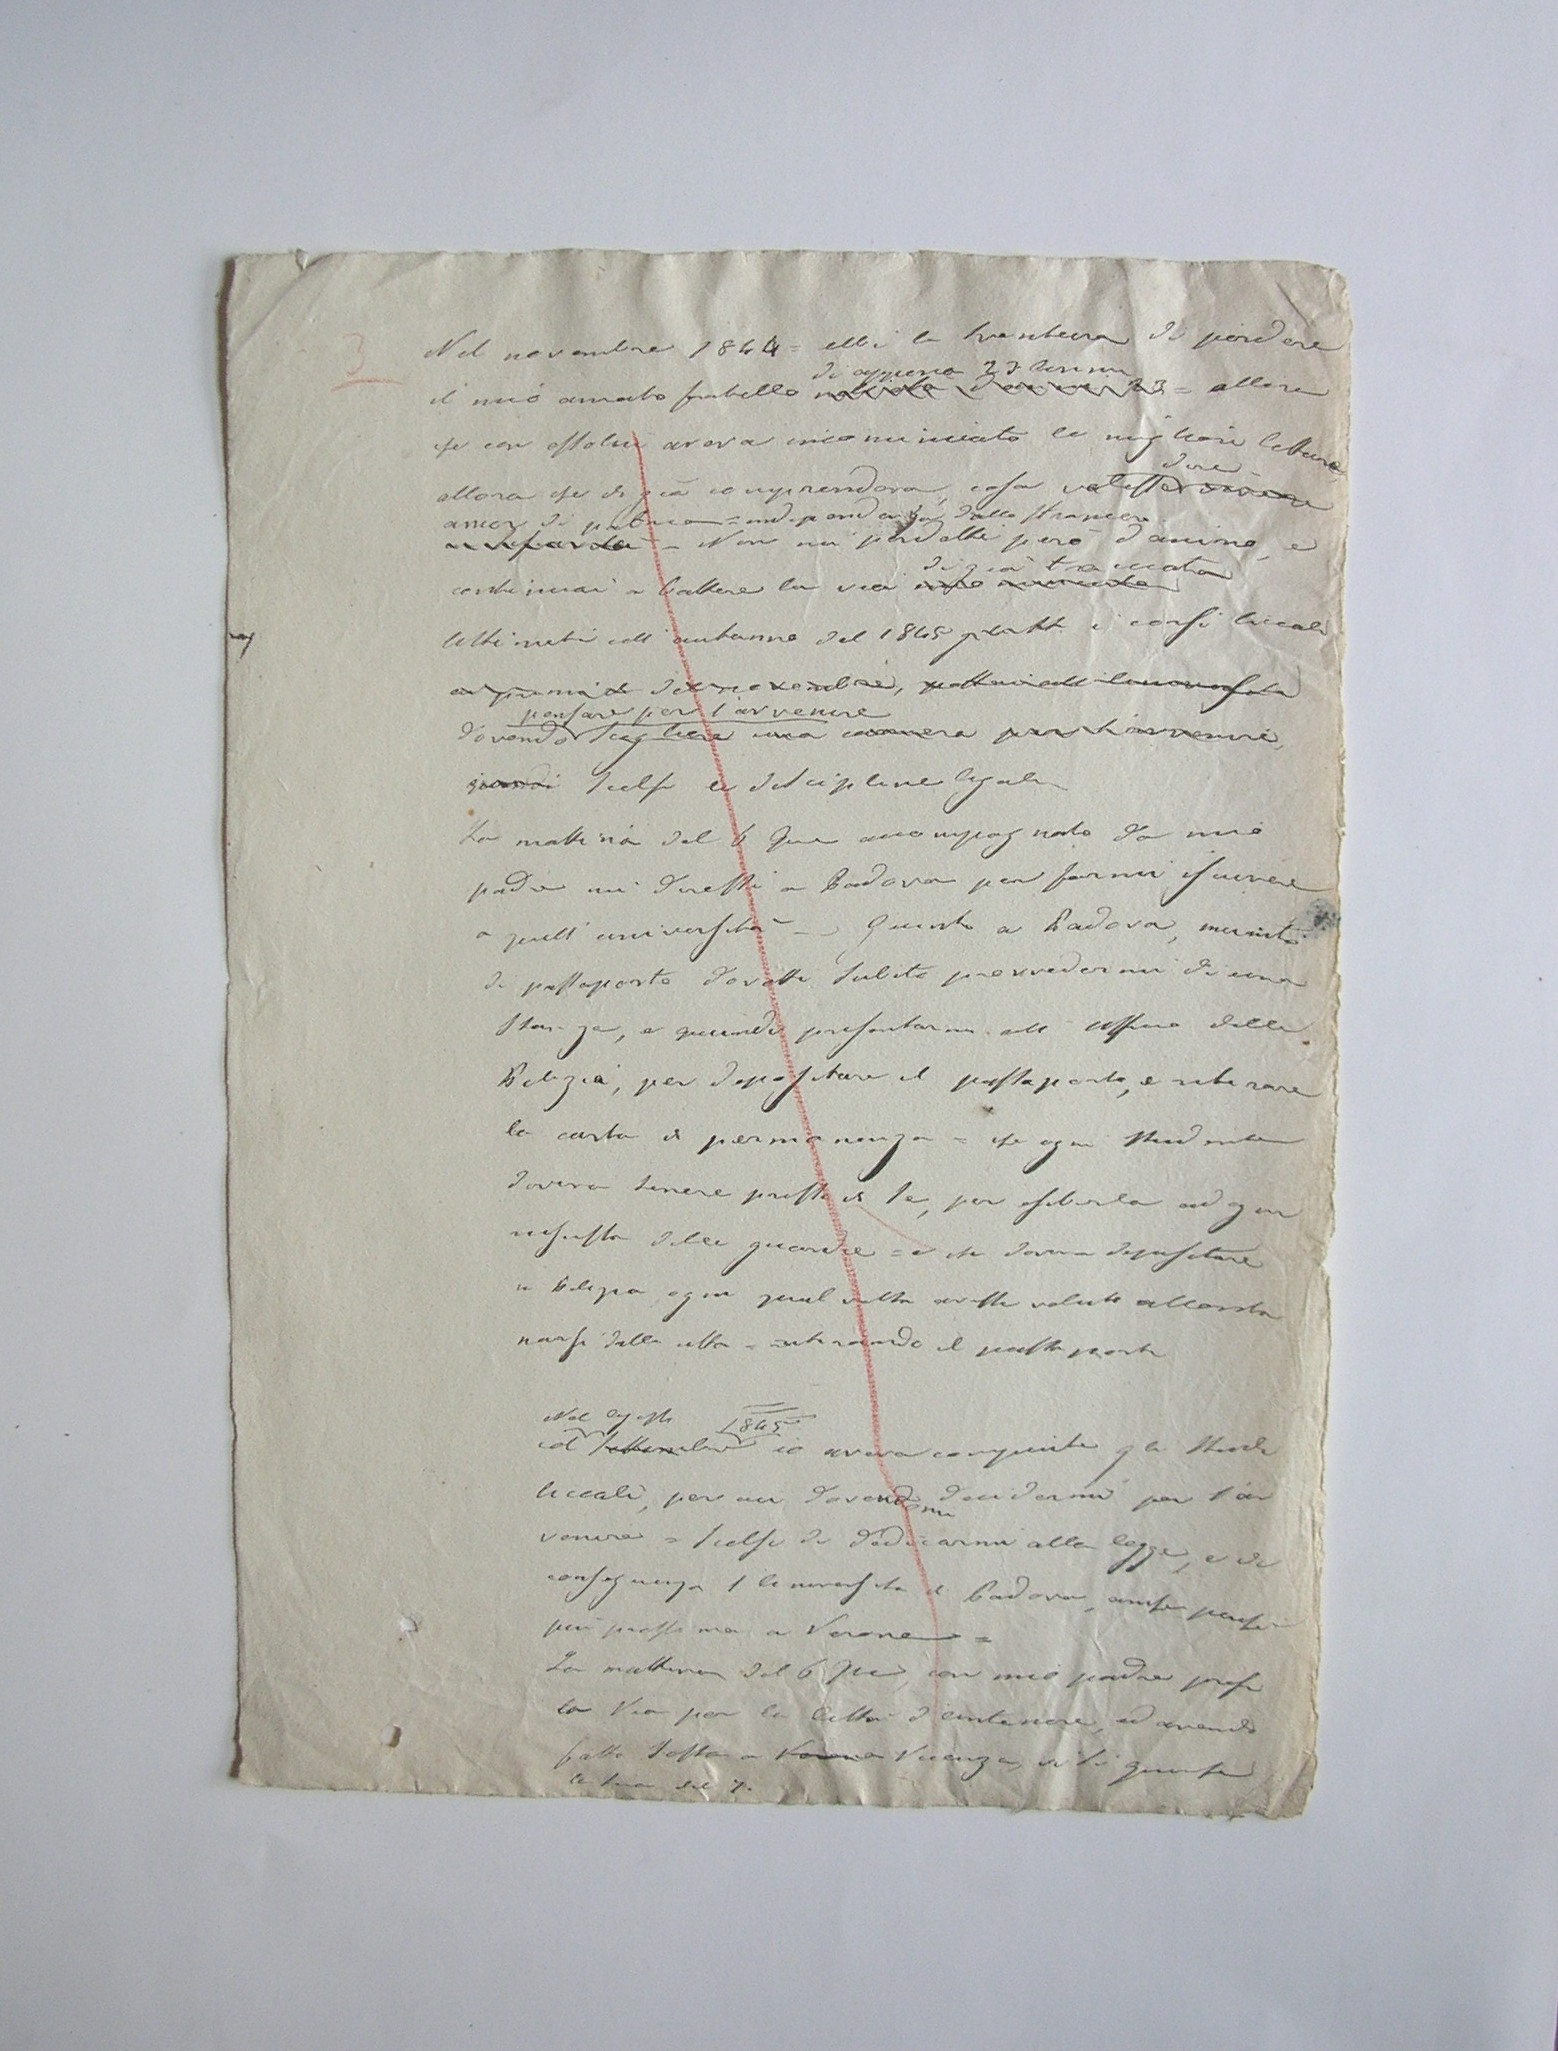 3
Nel novembre 1844 = ebbi la sventura di perdere
di appena 23 anni
il mio amato fratello d'anni 23 = allora
che con esso lui aveva incominciato le migliori letture
dire
allora che di già comprendeva, cosa volesse
amor di patria = indipendenza dallo straniero
– Non mi perdetti però d'animo, e
di già tracciata
continuai a battere la via
Ultimati coll'autunno del 1845 i corsi liceali
del novembre, all'università
pensare per l'avvenire
dovendo scegliere una carriera per l'avvenire,
quindi scelsi le discipline legali
La mattina del 6 accompagnato da mio
padre mi diressi a Padova per farmi iscrivere
a quell'università – Giunto a Padova, munito
di passaporto dovetti subito provvedermi di una
stanza, e quindi presentarmi all'ufficio della
Polizia, per depositare il passaporto, e ritirare
la carta di permanenza = che ogni studente
doveva tenere presso di se, per esibirla ad ogni
richiesta delle guardie = e che doveva depositare
a Polizia ogni qual volta avesse voluto allonta
narsi dalla città = ritirando il passaporto
Nel agosto 1845
col settembre io aveva compiuto gli studi
liceali, per cui dovendo decidermi per l'av
mi
venire = scelsi di dedicarmi alla legge, e di
conseguenza l'Università di Padova, anche perchè
più prossima a Verona =
La mattina del 6 con mio padre presi
la via per la città d'Antenore, ed avendo
fatto sosta a Verona Vicenza, vi si giunse
la sera del 7.